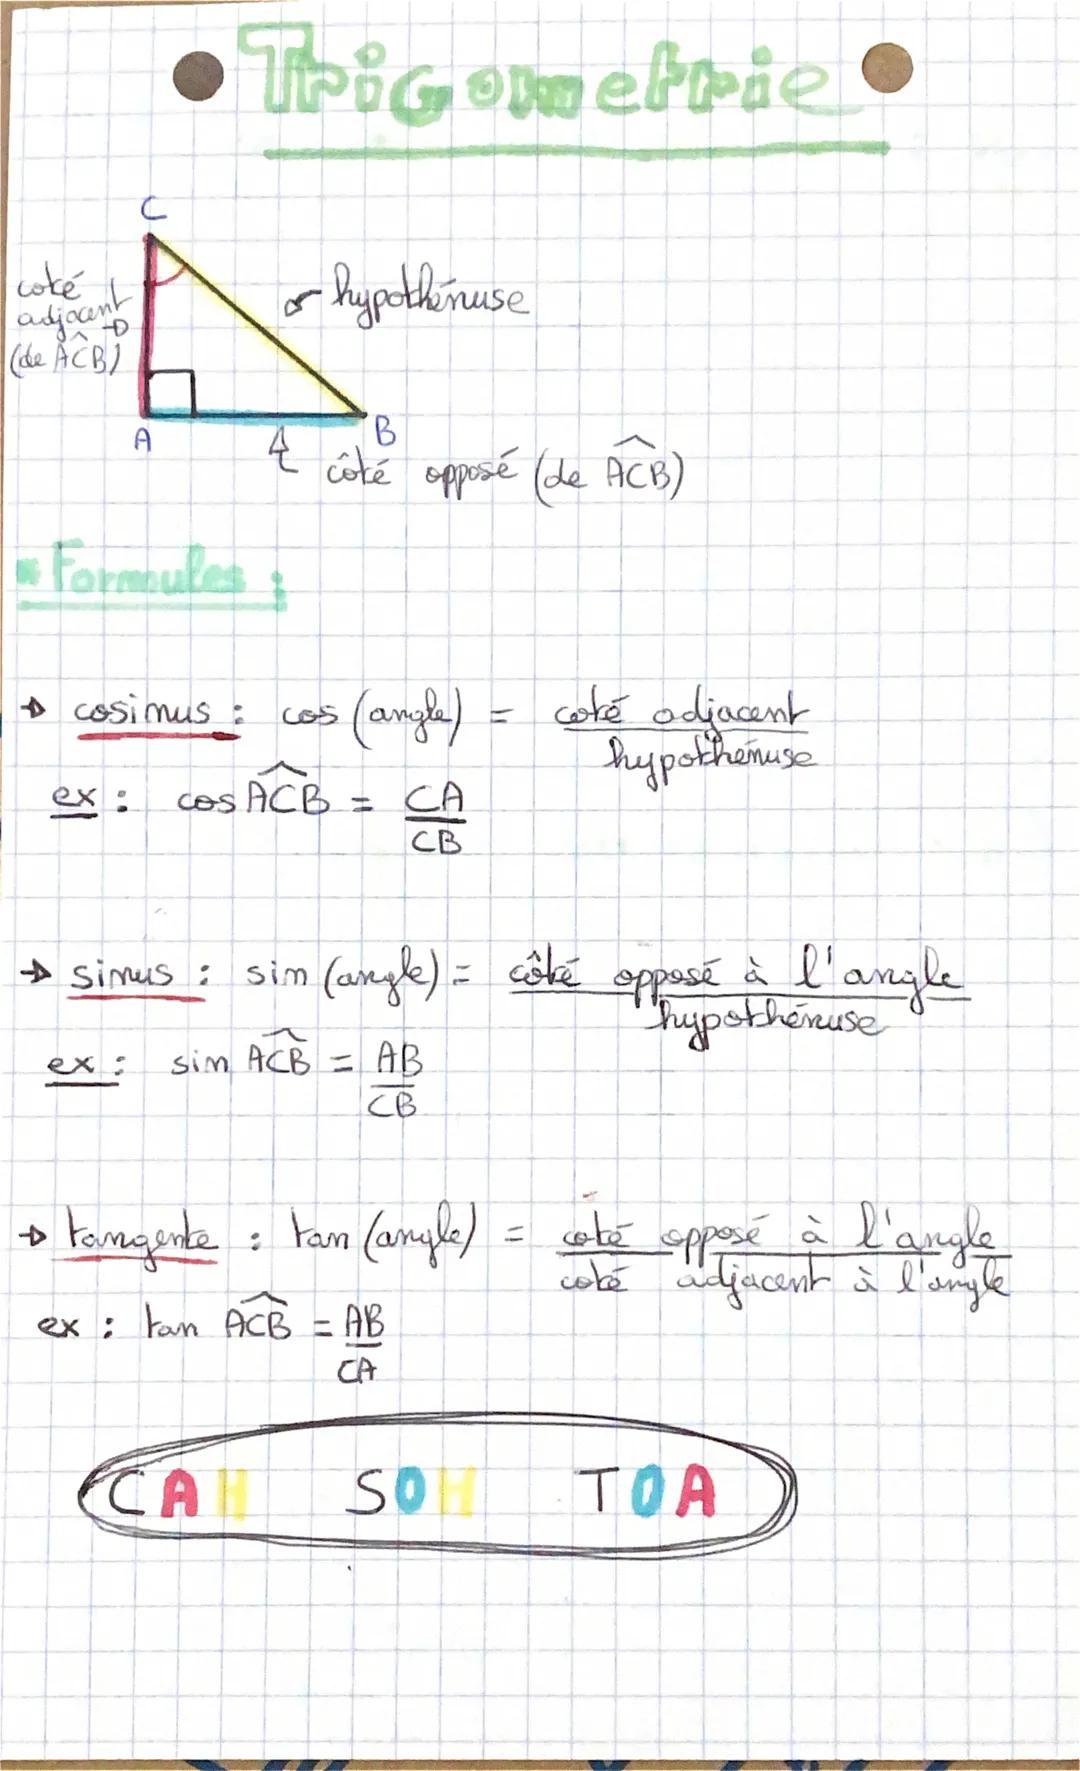 Trigometrie
C
coté
adjacent
(de ACB)
hypothénuse
A
B
côté opposé (de ACB)
Formules :
→ cosinus : cos (angle) = coté adjacent
hypothénuse
ex : cos ACB = CA
CB
→ sinus : sin (angle) = côté opposé à l'angle
hypothénuse
ex : sin ACB = AB
CB
→ tangente : tan (angle) = coté opposé à l'angle
coté adjacent à l'angle
ex : tan ACB = AB
CA
CAH SOH TOA